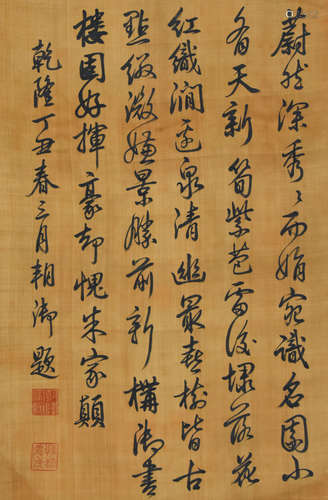 蔚然深秀〻而娟宛識名園小
有天新筍紫苞雷後埭落花
紅織澗邊泉清幽最喜樹皆古
點綴微嫌景勝前新構御書
樓固好揮豪却愧米家顛
乾隆丁丑春三月御題